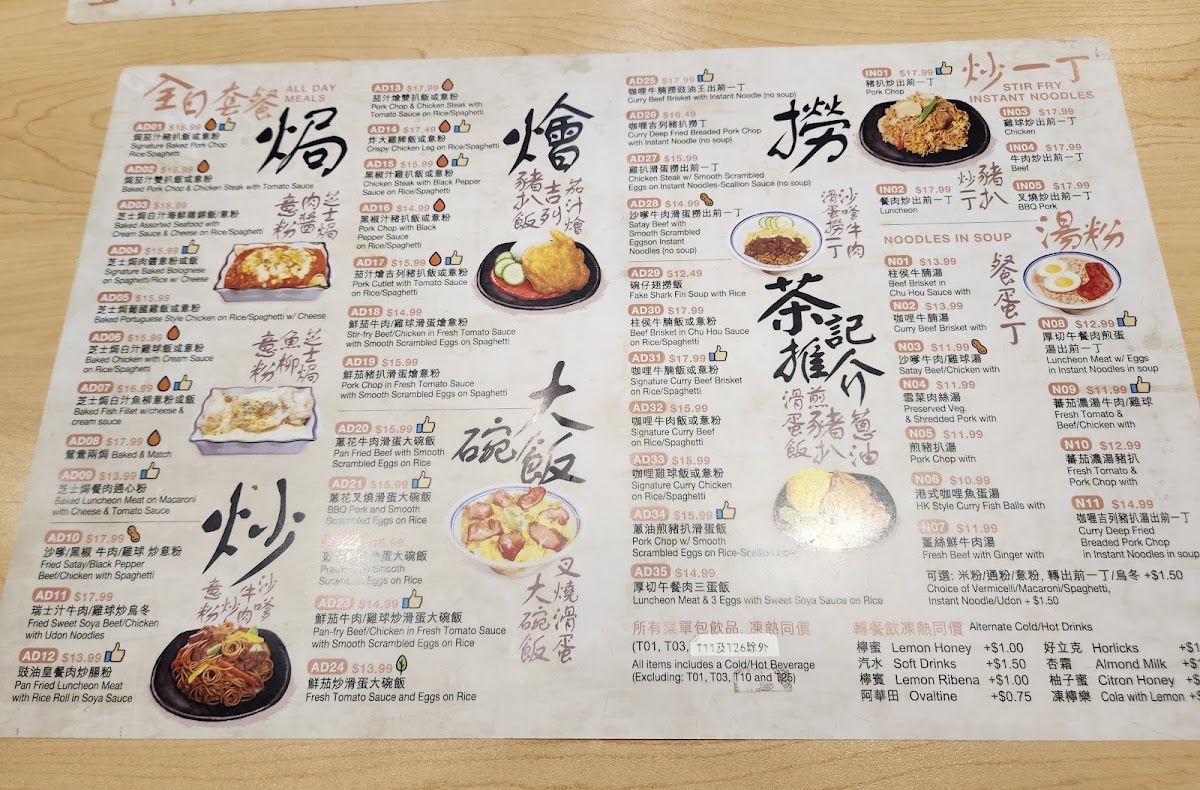 全日套餐
ALL DAY
MEALS
焗
AD01 $16.99
焗茄汁豬扒飯或意粉
Signature Baked Pork Chop
Rice/Spaghetti
AD02 $18.99
焗茄汁雙扒飯或意粉
Baked Pork Chop & Chicken Steak with Tomato Sauce
AD03 $18.99
芝士焗白汁海鮮雜錦飯/意粉
Baked Assorted Seafood with
Cream Sauce & Cheese on Rice/Spaghetti
AD04 $15.99
芝士焗肉醬意粉或飯
Signature Baked Bolognese
on Spaghetti/Rice w/ Cheese
芝士焗
肉醬
意粉
AD05 $15.99
芝士焗葡國雞飯或意粉
Baked Portuguese Style Chicken on Rice/Spaghetti w/ Cheese
AD06 $15.99
芝士焗白汁雞球飯或意粉
Baked Chicken with Cream Sauce
on Rice/Spaghetti
AD07 $16.99
芝士焗白汁魚柳意粉或飯
Baked Fish Fillet w/cheese &
cream sauce
芝士焗
魚柳
意粉
AD08 $17.99
鴛鴦兩焗 Baked & Match
AD09 $13.99
芝士焗餐肉通心粉
Baked Luncheon Meat on Macaroni
with Cheese & Tomato Sauce
炒
AD10 $17.99
沙嗲/黑椒 牛肉/雞球 炒意粉
Fried Satay/Black Pepper
Beef/Chicken with Spaghetti
AD11 $17.99
瑞士汁牛肉/雞球炒烏冬
Fried Sweet Soya Beef/Chicken
with Udon Noodles
沙嗲
牛肉
炒
意粉
AD12 $13.99
豉油皇餐肉炒腸粉
Pan Fried Luncheon Meat
with Rice Roll in Soya Sauce
AD13 $17.99
茄汁燴雙扒飯或意粉
Pork Chop & Chicken Steak with
Tomato Sauce on Rice/Spaghetti
AD14 $17.49
炸大雞脾飯或意粉
Crispy Chicken Leg on Rice/Spaghetti
AD15 $15.99
黑椒汁雞扒飯或意粉
Chicken Steak with Black Pepper
Sauce on Rice/Spaghetti
AD16 $14.99
黑椒汁豬扒飯或意粉
Pork Chop with Black
Pepper Sauce
on Rice/Spaghetti
AD17 $15.99
茄汁燴吉列豬扒飯或意粉
Pork Cutlet with Tomato Sauce
on Rice/Spaghetti
燴
茄汁燴
吉列
豬扒飯
AD18 $14.99
鮮茄牛肉/雞球滑蛋燴意粉
Stir-fry Beef/Chicken in Fresh Tomato Sauce
with Smooth Scrambled Eggs on Spaghetti
AD19 $15.99
鮮茄豬扒滑蛋燴意粉
Pork Chop in Fresh Tomato Sauce
with Smooth Scrambled Eggs on Spaghetti
大碗飯
AD20 $15.99
蔥花牛肉滑蛋大碗飯
Pan Fried Beef with Smooth
Scrambled Eggs on Rice
AD21 $15.99
蔥花叉燒滑蛋大碗飯
BBQ Pork and Smooth
Scrambled Eggs on Rice
大碗飯
Scrambled Eggs on Rice
AD23 $14.99
鮮茄牛肉/雞球炒滑蛋大碗飯
Pan-fry Beef/Chicken in Fresh Tomato Sauce
with Smooth Scrambled Eggs on Rice
AD24 $13.99
鮮茄炒滑蛋大碗飯
Fresh Tomato Sauce and Eggs on Rice
叉燒滑蛋
大碗飯
AD25 $17.99
咖哩牛腩撈豉油王出前一丁
Curry Beef Brisket with Instant Noodle (no soup)
AD26 $16.49
咖喱吉列豬扒撈丁
Curry Deep Fried Breaded Pork Chop
with Instant Noodle (no soup)
AD27 $15.99
雞扒滑蛋撈出前一丁
Chicken Steak w/ Smooth Scrambled
Eggs on Instant Noodles-Scallion Sauce (no soup)
AD28 $14.99
沙嗲牛肉滑蛋撈出前一丁
Satay Beef with
Smooth Scrambled
Eggson Instant
Noodles (no soup)
撈
沙嗲牛肉
滑蛋撈丁
AD29 $12.49
碗仔翅撈飯
Fake Shark Fin Soup with Rice
AD30 $17.99
柱侯牛腩飯或意粉
Beef Brisket in Chu Hou Sauce
on Rice/Spaghetti
AD31 $17.99
咖哩牛腩飯或意粉
Signature Curry Beef Brisket
on Rice/Spaghetti
AD32 $15.99
咖哩牛肉飯或意粉
Signature Curry Beef
on Rice/Spaghetti
AD33 $15.99
咖哩雞球飯或意粉
Signature Curry Chicken
on Rice/Spaghetti
AD34 $15.99
蔥油煎豬扒滑蛋飯
Pork Chop w/ Smooth
Scrambled Eggs on Rice-Scallion
AD35 $14.99
厚切午餐肉三蛋飯
Luncheon Meat & 3 Eggs with Sweet Soya Sauce on Rice
茶記
推介
蔥油
煎豬扒
滑蛋飯
所有菜單包飲品, 凍熱同價
(T01, T03, T11及T26除外
All items includes a Cold/Hot Beverage
(Excluding: T01, T03, T10 and T25)
炒一丁
STIR FRY
INSTANT NOODLES
IN01 $17.99
豬扒炒出前一丁
Pork Chop
IN02 $17.99
餐肉炒出前一丁
Luncheon
豬扒
炒丁
IN03 $17.99
雞球炒出前一丁
Chicken
IN04 $17.99
牛肉炒出前一丁
Beef
IN05 $17.99
叉燒炒出前一丁
BBQ Pork
NOODLES IN SOUP 湯粉
N01 $13.99
柱侯牛腩湯
Beef Brisket in
Chu Hou Sauce with
N02 $13.99
咖哩牛腩湯
Curry Beef Brisket with
N03 $11.99
沙嗲牛肉/雞球湯
Satay Beef/Chicken with
N04 $11.99
雪菜肉絲湯
Preserved Veg.
& Shredded Pork with
N05 $11.99
煎豬扒湯
Pork Chop with
N06 $10.99
港式咖哩魚蛋湯
HK Style Curry Fish Balls with
N07 $11.99
薑絲鮮牛肉湯
Fresh Beef with Ginger with
餐蛋丁
N08 $12.99
厚切午餐肉煎蛋
湯出前一丁
Luncheon Meat w/ Eggs
in Instant Noodles in soup
N09 $11.99
蕃茄濃湯牛肉/雞球
Fresh Tomato &
Beef/Chicken with
N10 $12.99
蕃茄濃湯豬扒
Fresh Tomato &
Pork Chop with
N11 $14.99
咖喱吉列豬扒湯出前一丁
Curry Deep Fried
Breaded Pork Chop
in Instant Noodles in soup
可選: 米粉/通粉/意粉, 轉出前一丁/烏冬 +$1.50
Choice of Vermicelli/Macaroni/Spaghetti,
Instant Noodle/Udon + $1.50
轉餐飲凍熱同價 Alternate Cold/Hot Drinks
檸蜜 Lemon Honey +$1.00
汽水 Soft Drinks +$1.50
檸賓 Lemon Ribena +$1.00
阿華田 Ovaltine +$0.75
好立克 Horlicks
杏霜 Almond Milk
柚子蜜 Citron Honey
凍檸樂 Cola with Lemon